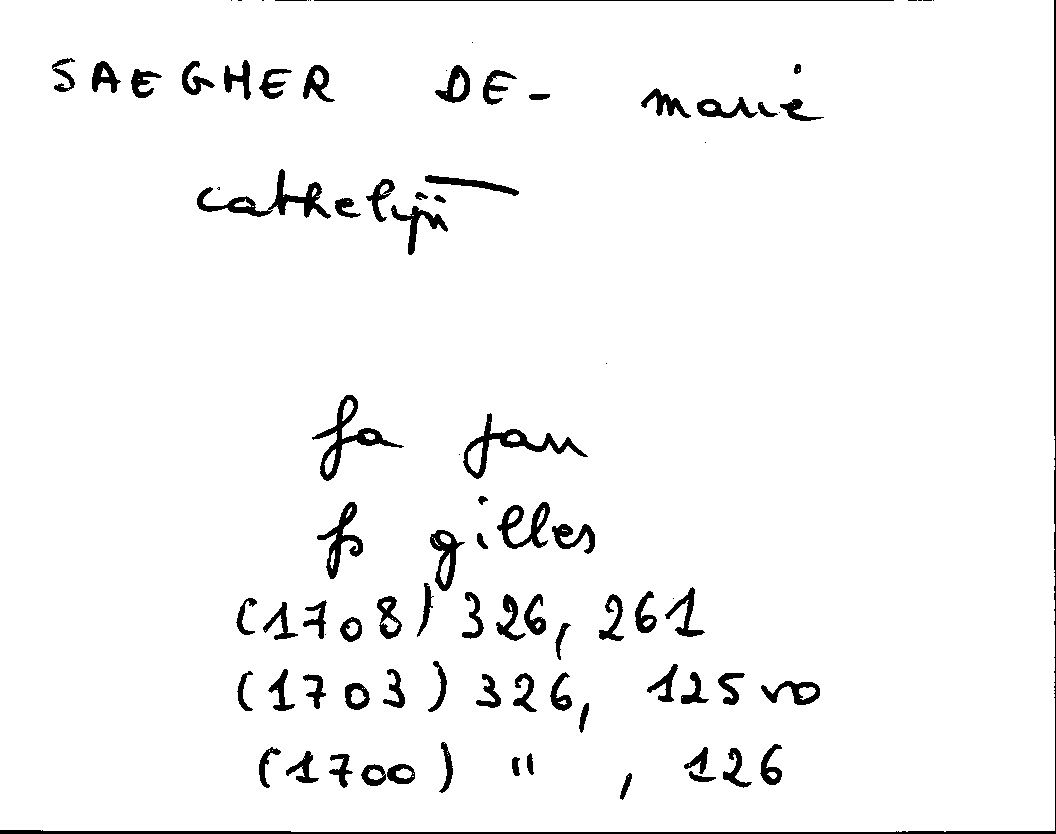 SAEGHER DE- marie
cathelijn
fa jan
fs gilles
(1708) 326, 261
(1703) 326, 125 vo
(1700) " , 126